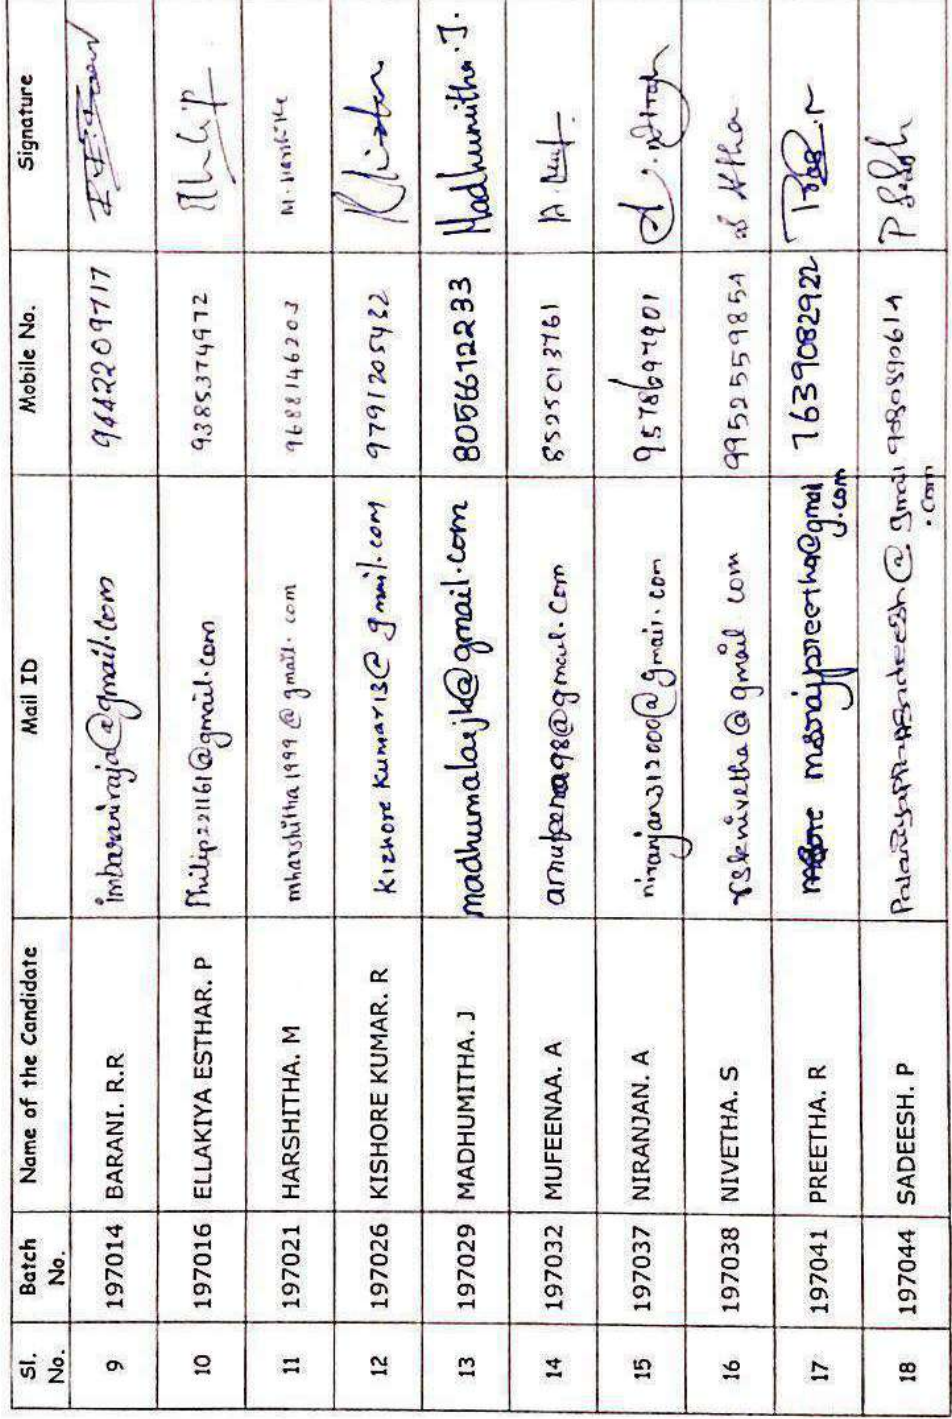 Sl. No. Batch No. Name of the Candidate Mail ID Mobile No. Signature
9 197014 BARANI. R.R imbaraniraja@gmail.com 9442209717
10 197016 ELLAKIYA ESTHAR. P Philip221161@gmail.com 9385374972 Philip
11 197021 HARSHITHA. M mharshitha1999@gmail.com 9688146203
12 197026 KISHORE KUMAR. R kizhorekumar13@gmail.com 9791205432
13 197029 MADHUMITHA. J madhumalarjk@gmail.com 8056612233 Madhumitha.J.
14 197032 MUFEENAA. A amufeena98@gmail.com 8525013761
15 197037 NIRANJAN. A niranjan312000@gmail.com 9578697901
16 197038 NIVETHA. S rsknivetha@gmail com 9952559854
17 197041 PREETHA. R msrajjpreetha@gmail.com 7639082922
18 197044 SADEESH. P @gmail.com 9080890614